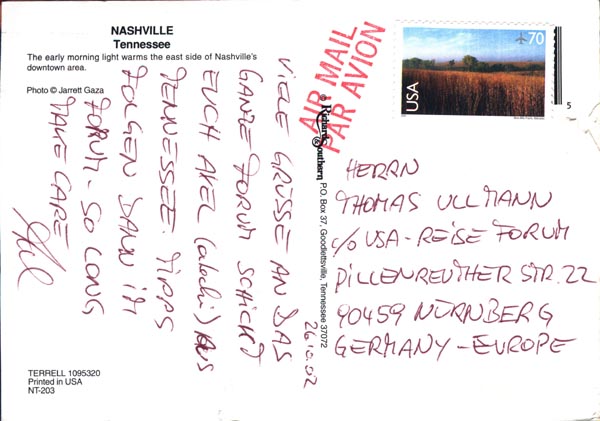 NASHVILLE
Tennessee
The early morning light warms the east side of Nashville's
downtown area.
Photo © Jarrett Gaza
VIELE GRÜSSE AN DAS
GANZE FORUM SCHICKT
EUCH AXEL AUS
TENNESSEE. TIPPS
FOLGEN DANN IM
FORUM - SO LONG
TAKE CARE
26.10.02
TERRELL 1095320
Printed in USA
NT-203
© Richards & Southern P.O. Box 37, Goodlettsville, Tennessee 37072
AIR MAIL
PAR AVION
70
USA
5
HERRN
THOMAS ULLMANN
c/o USA-REISE FORUM
PILLENREUTHER STR. 22
90459 NÜRNBERG
GERMANY - EUROPE